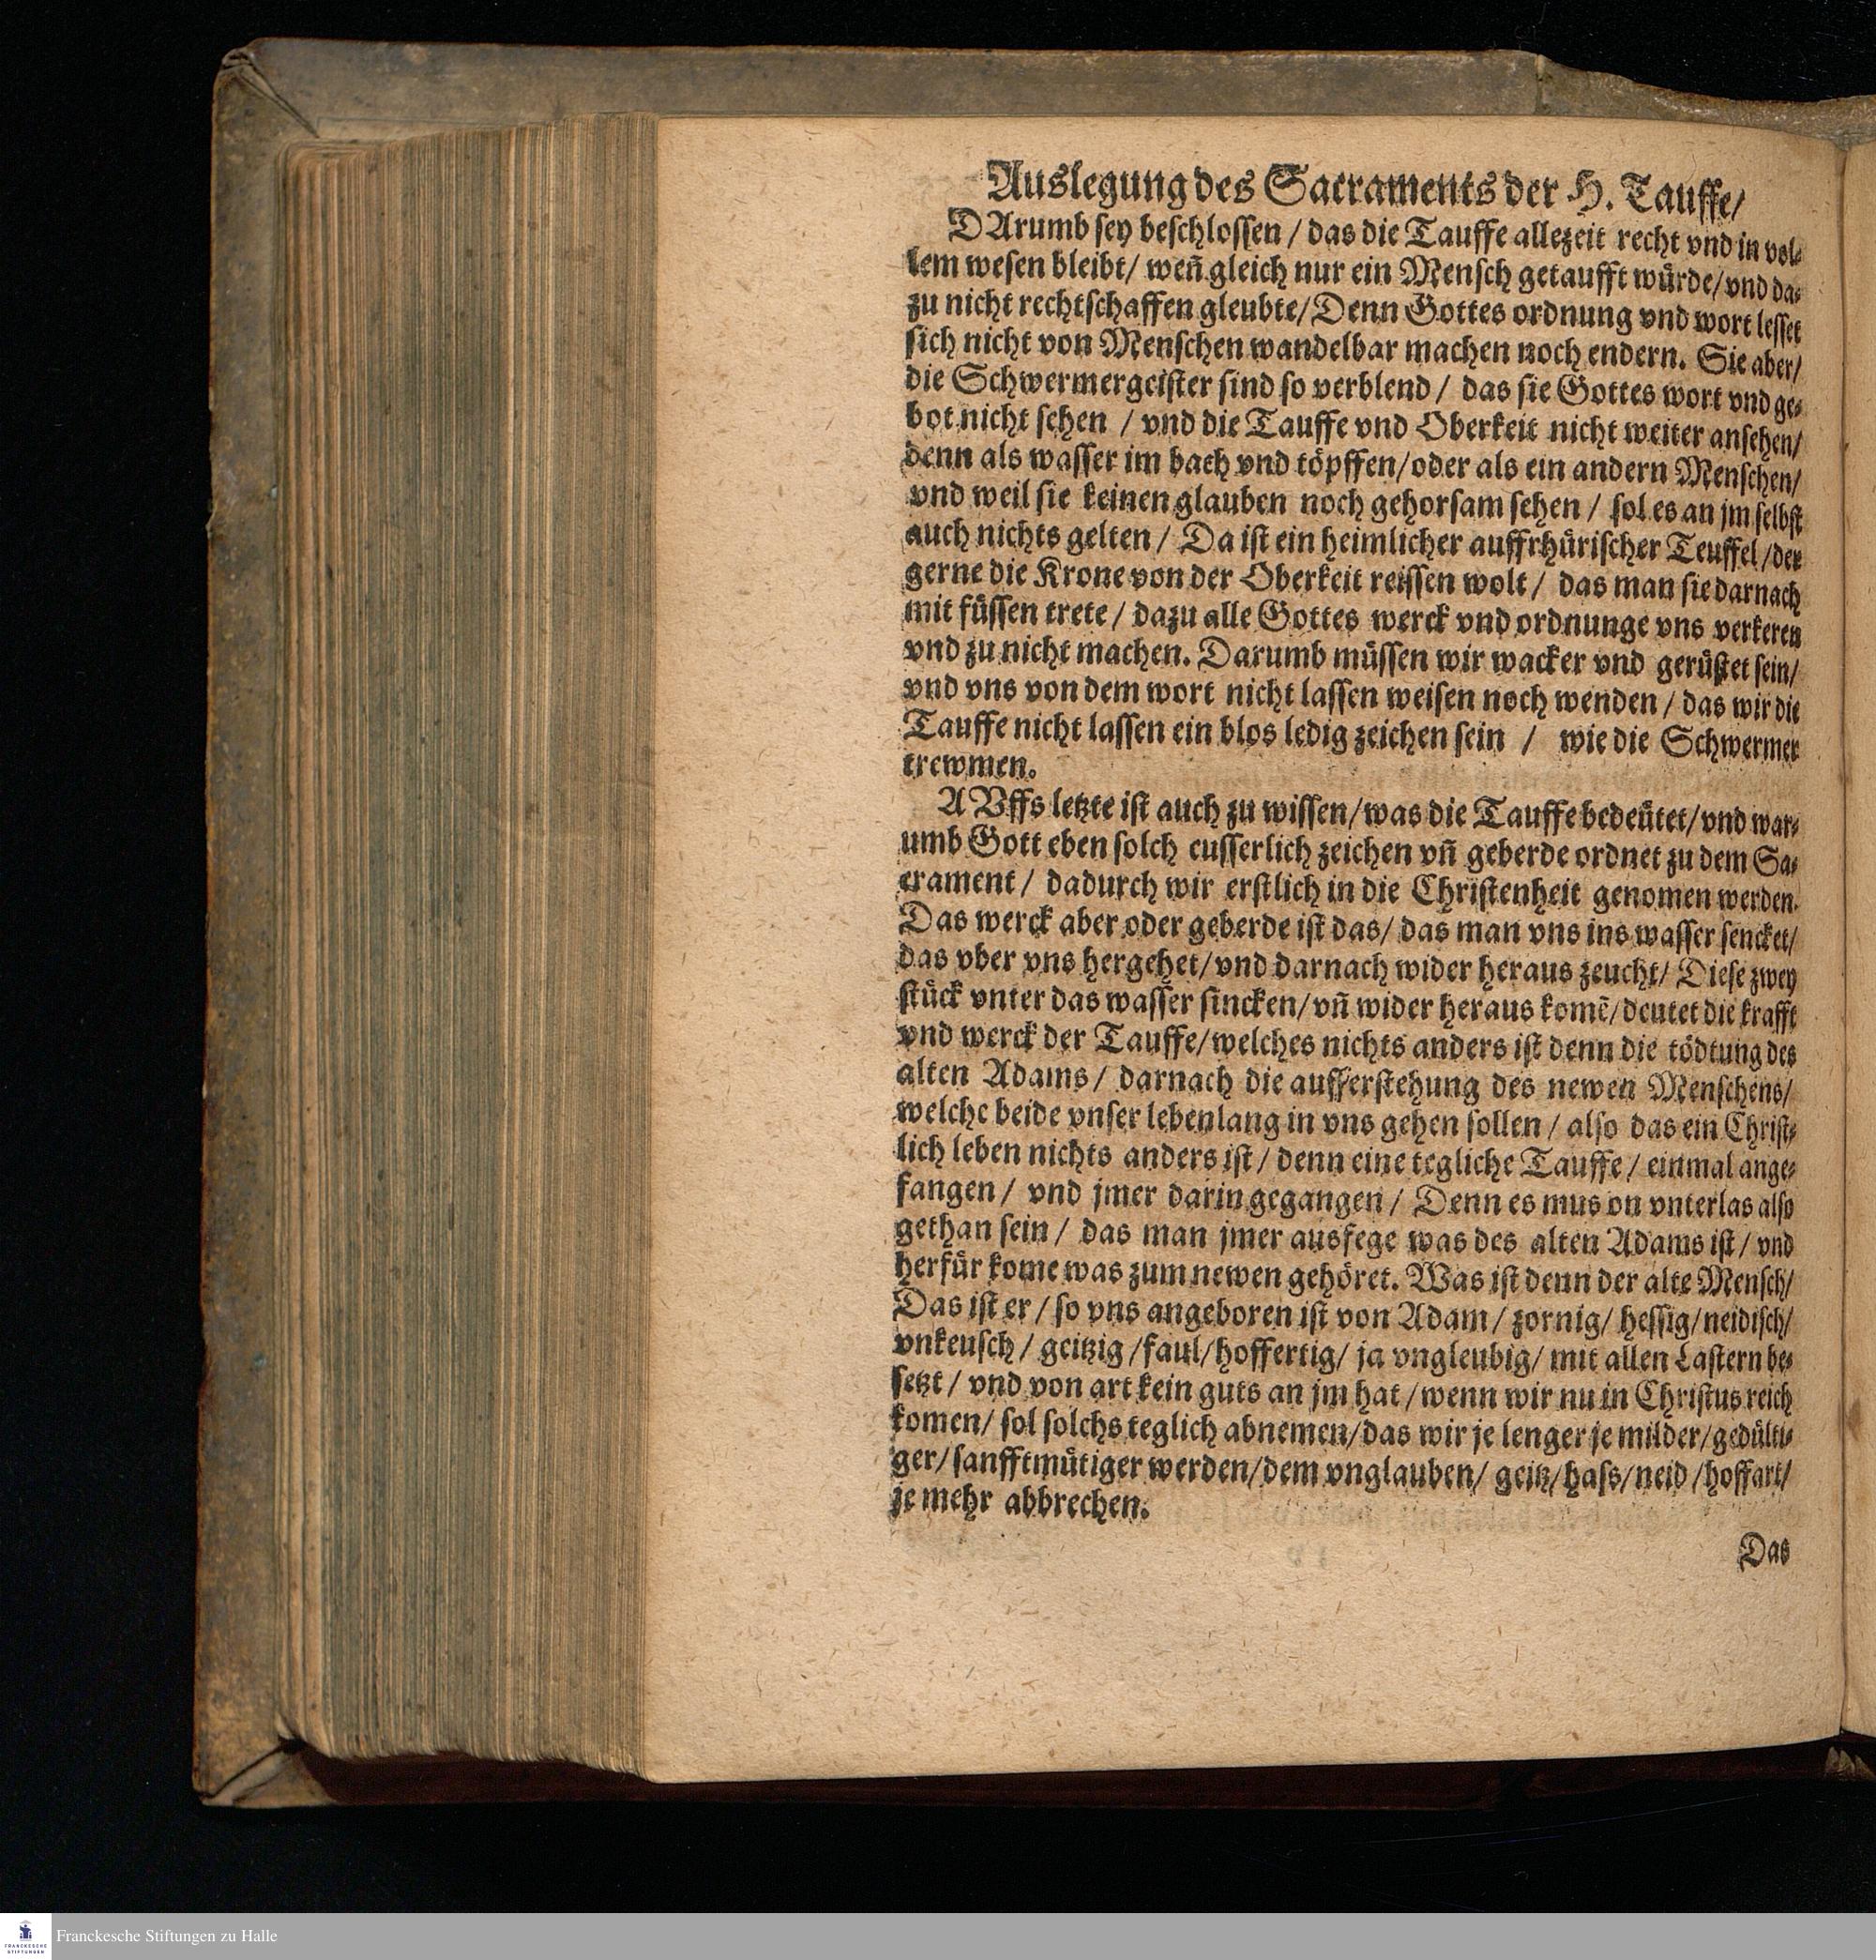 Auslegung des Sacraments der H. Tauffe/
DArumb sey beschlossen / das die Tauffe allezeit recht vnd in vol-
lem wesen bleibt/ weñ gleich nur ein Mensch getaufft würde/ vnd da-
zu nicht rechtschaffen gleubte/ Denn Gottes ordnung vnd wort lesset
sich nicht von Menschen wandelbar machen noch endern. Sie aber/
die Schwermergeister sind so verblend / das sie Gottes wort vnd ge-
bot nicht sehen / vnd die Tauffe vnd Oberkeit nicht weiter ansehen/
denn als wasser im bach vnd töpffen/ oder als ein andern Menschen/
vnd weil sie keinen glauben noch gehorsam sehen / sol es an jm selbst
auch nichts gelten / Da ist ein heimlicher auffrhürischer Teuffel / der
gerne die Krone von der Oberkeit reissen wolt / das man sie darnach
mit füssen trete / dazu alle Gottes werck vnd ordnunge vns verkeren
vnd zu nicht machen. Darumb müssen wir wacker vnd gerüstet sein/
vnd vns von dem wort nicht lassen weisen noch wenden / das wir die
Tauffe nicht lassen ein blos ledig zeichen sein / wie die Schwermer
trewmen.
AVffs letzte ist auch zu wissen/ was die Tauffe bedeütet/ vnd war-
umb Gott eben solch eusserlich zeichen vñ geberde ordnet zu dem Sa-
crament / dadurch wir erstlich in die Christenheit genomen werden.
Das werck aber oder geberde ist das/ das man vns ins wasser sencket/
das vber vns hergehet/ vnd darnach wider heraus zeucht/ Diese zwey
stück vnter das wasser sincken/ vñ wider heraus komẽ/ deutet die krafft
vnd werck der Tauffe/ welches nichts anders ist denn die tödtung des
alten Adams / darnach die aufferstehung des newen Menschens/
welche beide vnser lebenlang in vns gehen sollen / also das ein Christ-
lich leben nichts anders ist / denn eine tegliche Tauffe / einmal ange-
fangen / vnd jmer darin gegangen / Denn es mus on vnterlas also
gethan sein / das man jmer ausfege was des alten Adams ist / vnd
herfür kome was zum newen gehöret. Was ist denn der alte Mensch/
Das ist er / so vns angeboren ist von Adam / zornig/ hessig/ neidisch/
vnkeusch / geitzig / faul/ hoffertig/ ja vngleubig/ mit allen Lastern be-
setzt / vnd von art kein guts an jm hat / wenn wir nu in Christus reich
komen/ sol solchs teglich abnemen/ das wir je lenger je milder/ gedülti-
ger/ sanfftmütiger werden/ dem vnglauben/ geitz/ hass/ neid / hoffart/
je mehr abbrechen.
Das
Franckesche Stiftungen zu Halle
FRANCKESCHE
STIFTUNGEN